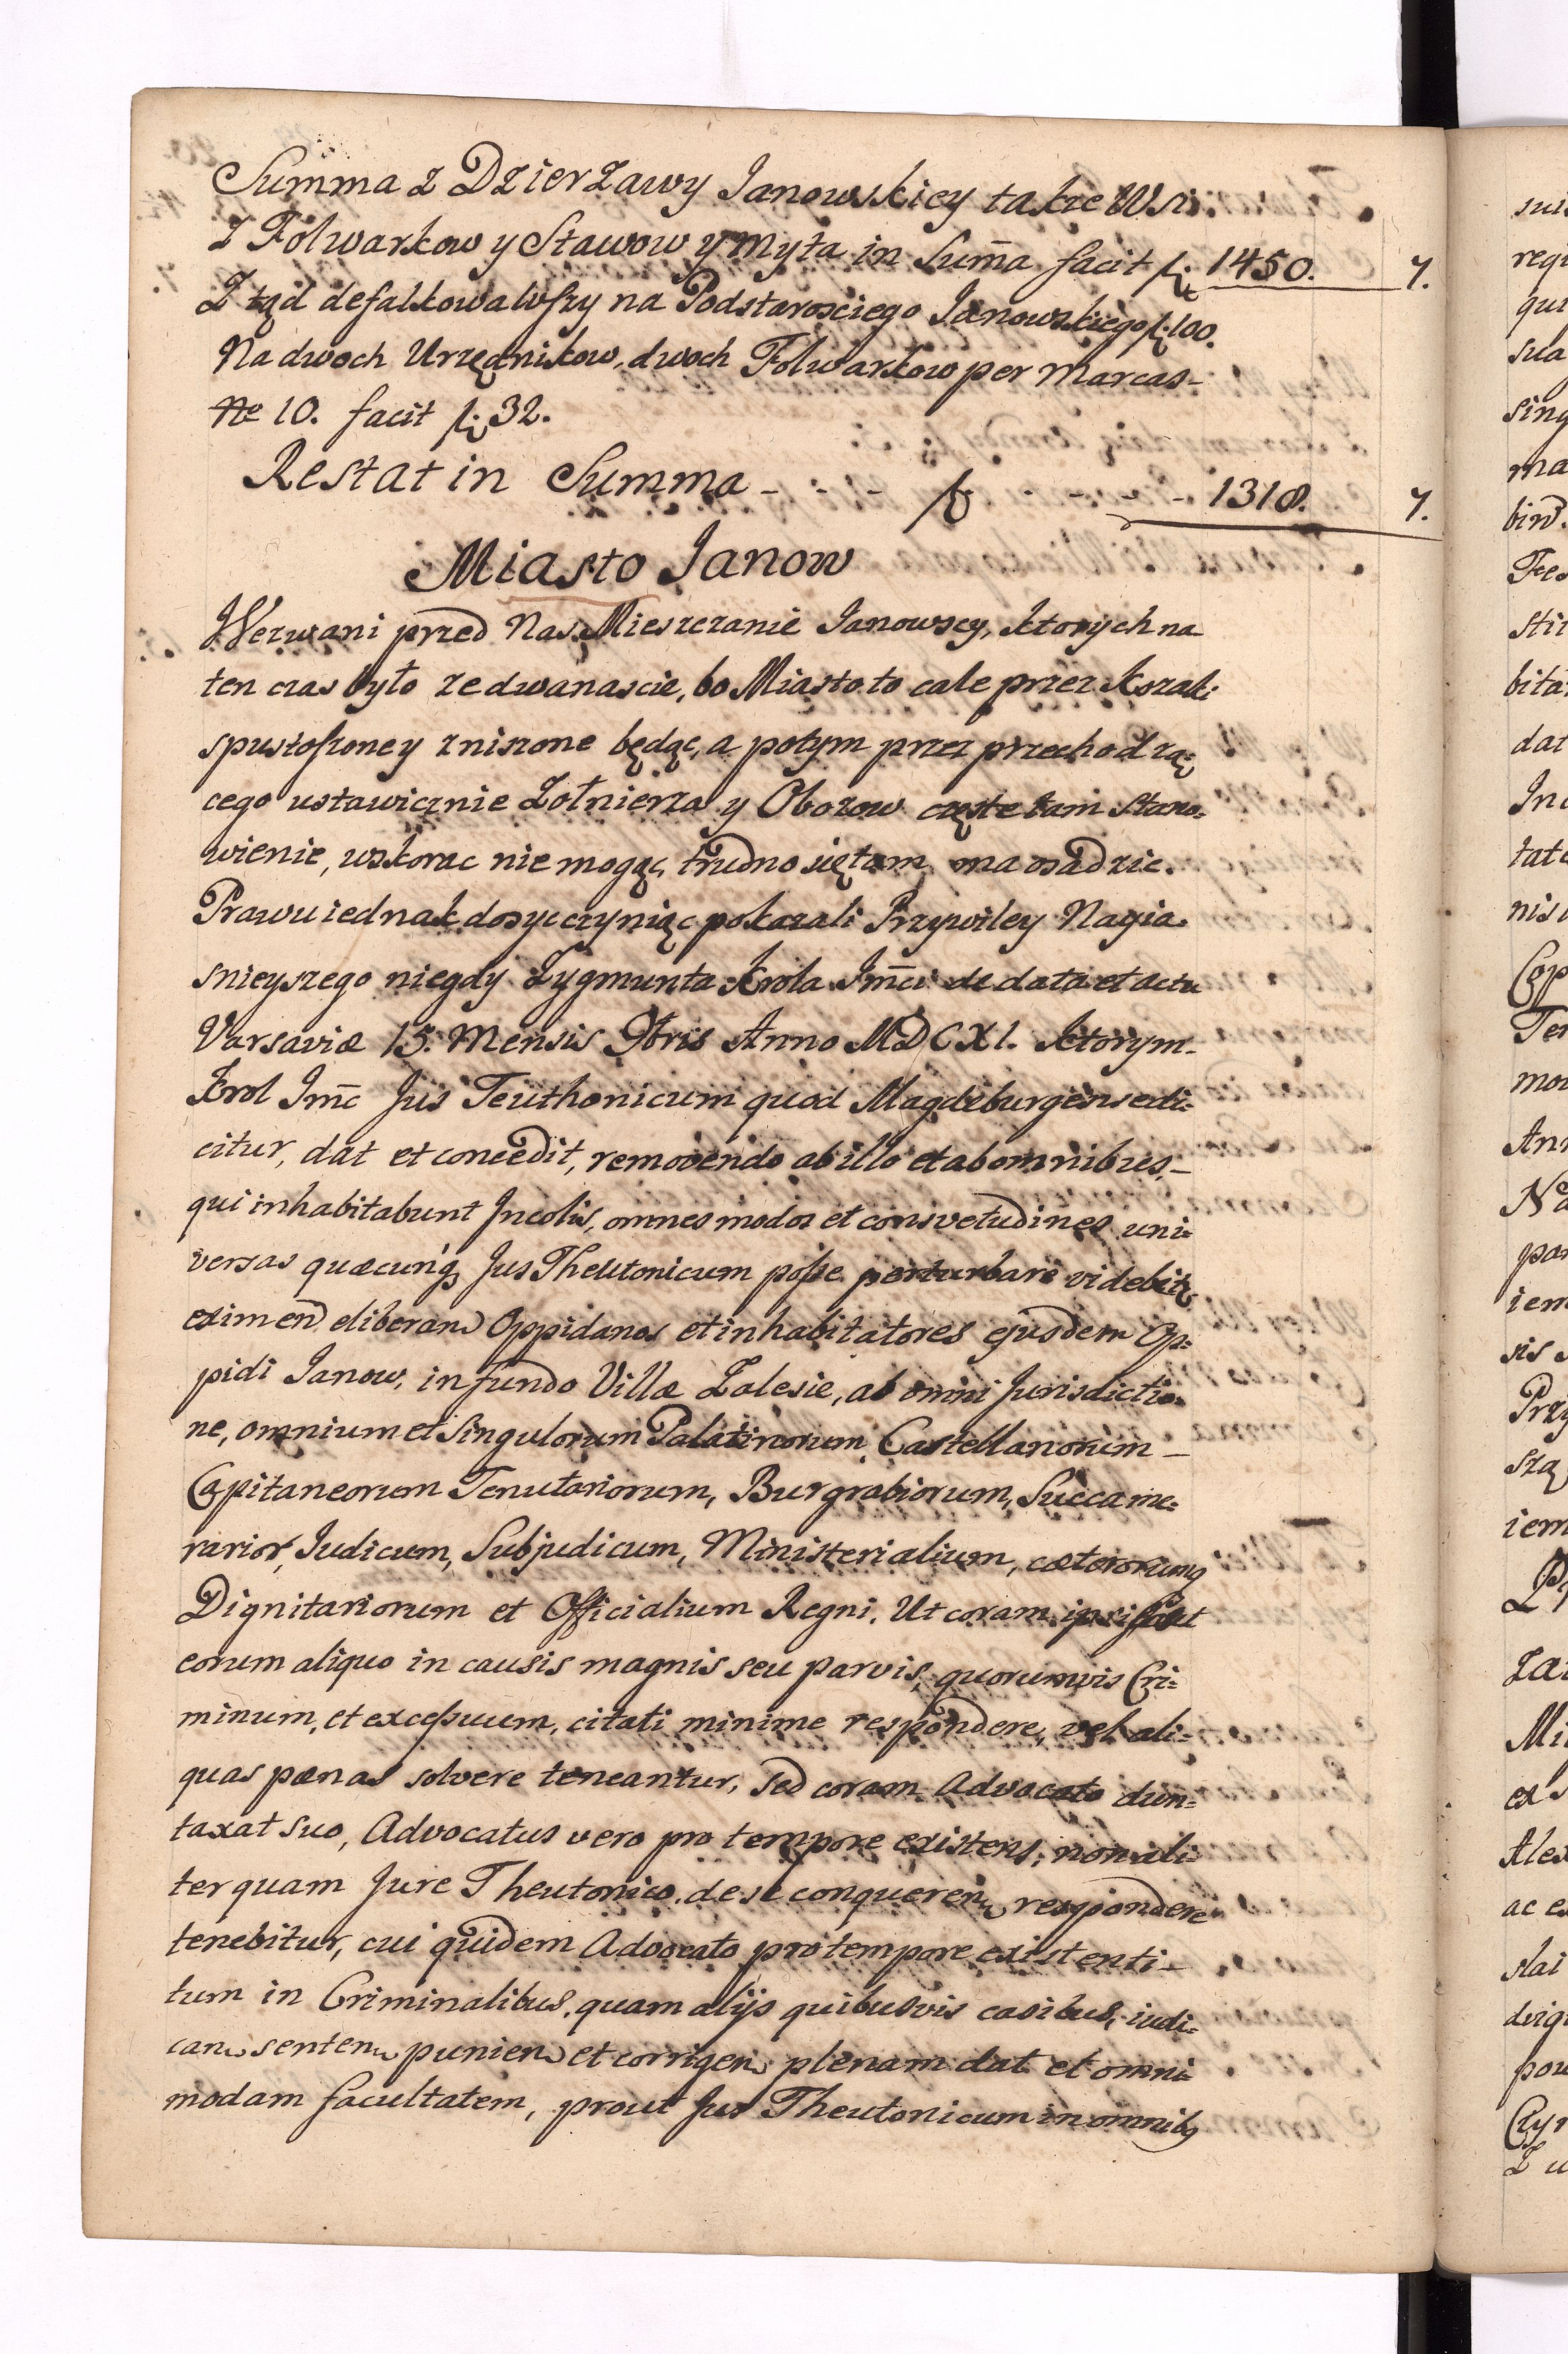 Summa z Dzierzawy Janowskiey także Wsi
z Folwarkow y Stawow y Myta in Sum̃a facit fl. 1450. 7.
Z tąd defalkowawszy na Podstarosciego Janowskiego fl. 100.
Na dwoch Urzędnikow, dwoch Folwarkow per marcas
N° 10. facit fl. 32.
Restat in Summa - - - fl. - - - 1318. 7.
Miasto Janow
Wezwani przed Nas Mieszczanie Janowscy, ktorych na
ten czas było ze dwanascie, bo Miasto to cale przez Kozaki
spustoszone y zniszone będąc, a potym przez przechodzą=
cego ustawicznie Zołnierza y Obozow częste tam stano=
wienie, wskorac nie mogąc, trudno się tam ma osadzic.
Prawu iednak dosyc czyniąc pokazali Przywiley Nayia=
snieyszego niegdy Zygmunta Krola Jm̃ci de data et actu
Varsaviæ 15. Mensis 9bris Anno MDCXI. Ktorym
Krol Jm̃c Jus Teuthonicum quod Magdeburgense di=
citur, dat et concedit, removendo ab illo et ab omnibus,
qui inhabitabunt Incolis, omnes modos et consvetudines uni=
versas quæcunq; Jus Theutonicum posse perturbare videbit
eximend eliberand Oppidanos et inhabitatores ejusdem Op=
pidi Janow, in fundo Villæ Zalesie, ab omni Jurisdictio=
ne, omnium et Singulorum Palatinorum, Castellanorum
Capitaneorum Tenutariorum, Burgrabiorum, Succame=
rarior, Judicum, Subjudicum, Ministerialium, cæterorumq
Dignitariorum et Officialium Regni. Ut coram ipsis aut
eorum aliquo in causis magnis seu parvis, quorumvis Cri=
minum, et excessuum, citati minime respondere, vel ali=
quas pœnas solvere teneantur, sed coram Advocato dun=
taxat suo, Advocatus vero pro tempore existens, non ali=
ter quam Jure Theutonico, de se conqueren respondere
tenebitur, cui quidem Advocato pro tempore existenti
tum in Criminalibus, quam alijs quibusvis casibus, iudi=
can senten punien et corrigen plenam dat et omni
modam facultatem, prout Jus Theutonicum in omnibq